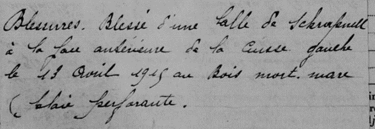 Blessures. Blessé d'une balle de Schrapnell
à la face antérieure de la cuisse gauche
le 13 Avril 1915 au Bois mort-mare
(plaie perforante.